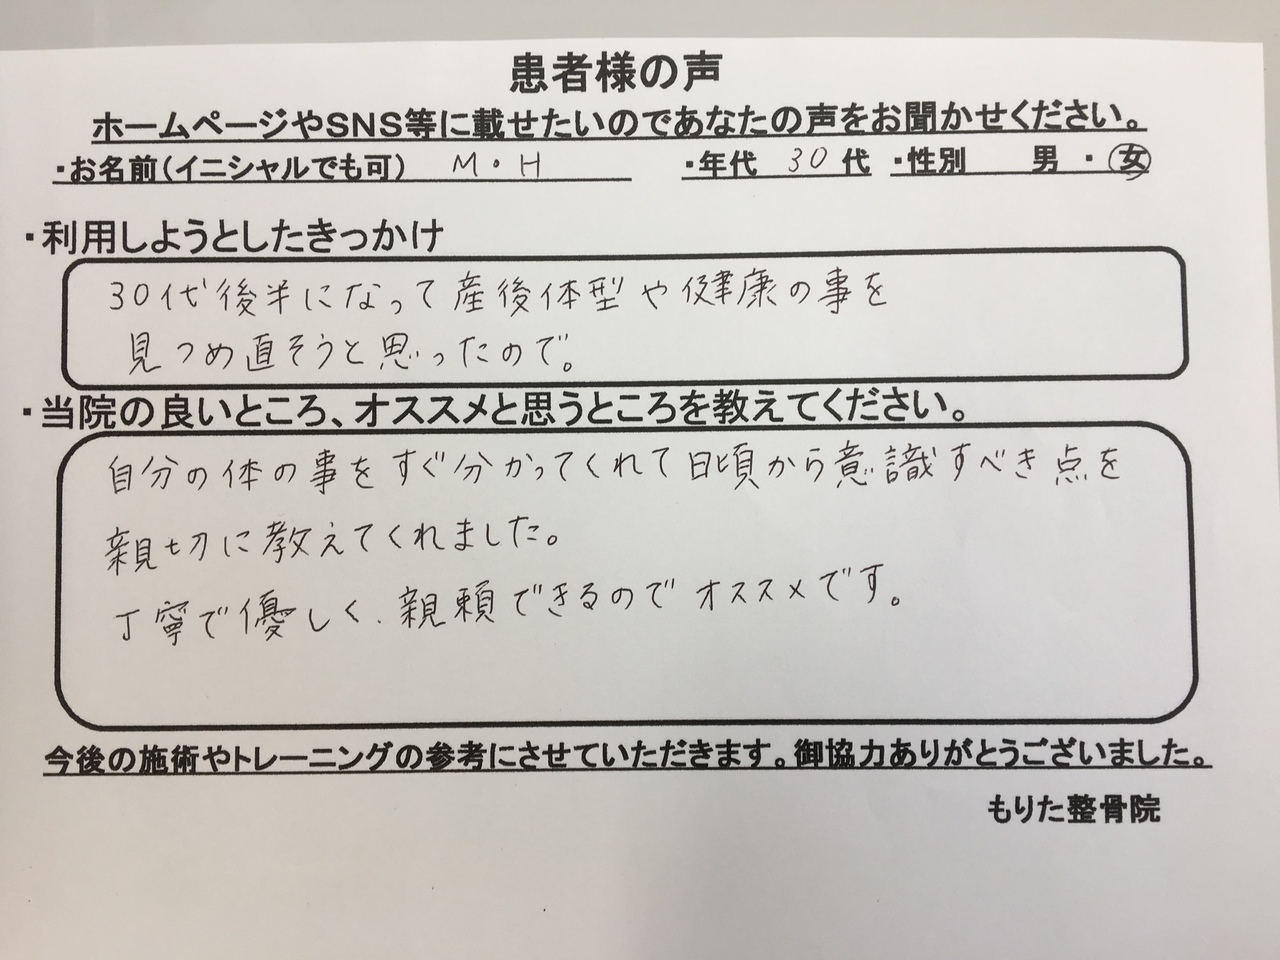 患者様の声
ホームページやSNS等に載せたいのであなたの声をお聞かせください。
・お名前(イニシャルでも可) M・H ・年代 30代 ・性別 男・女
・利用しようとしたきっかけ
30代後半になって産後体型や健康の事を
見つめ直そうと思ったので。
・当院の良いところ、オススメと思うところを教えてください。
自分の体の事をすぐ分かってくれて日頃から意識すべき点を
親切に教えてくれました。
丁寧で優しく、親頼できるのでオススメです。
今後の施術やトレーニングの参考にさせていただきます。御協力ありがとうございました。
もりた整骨院